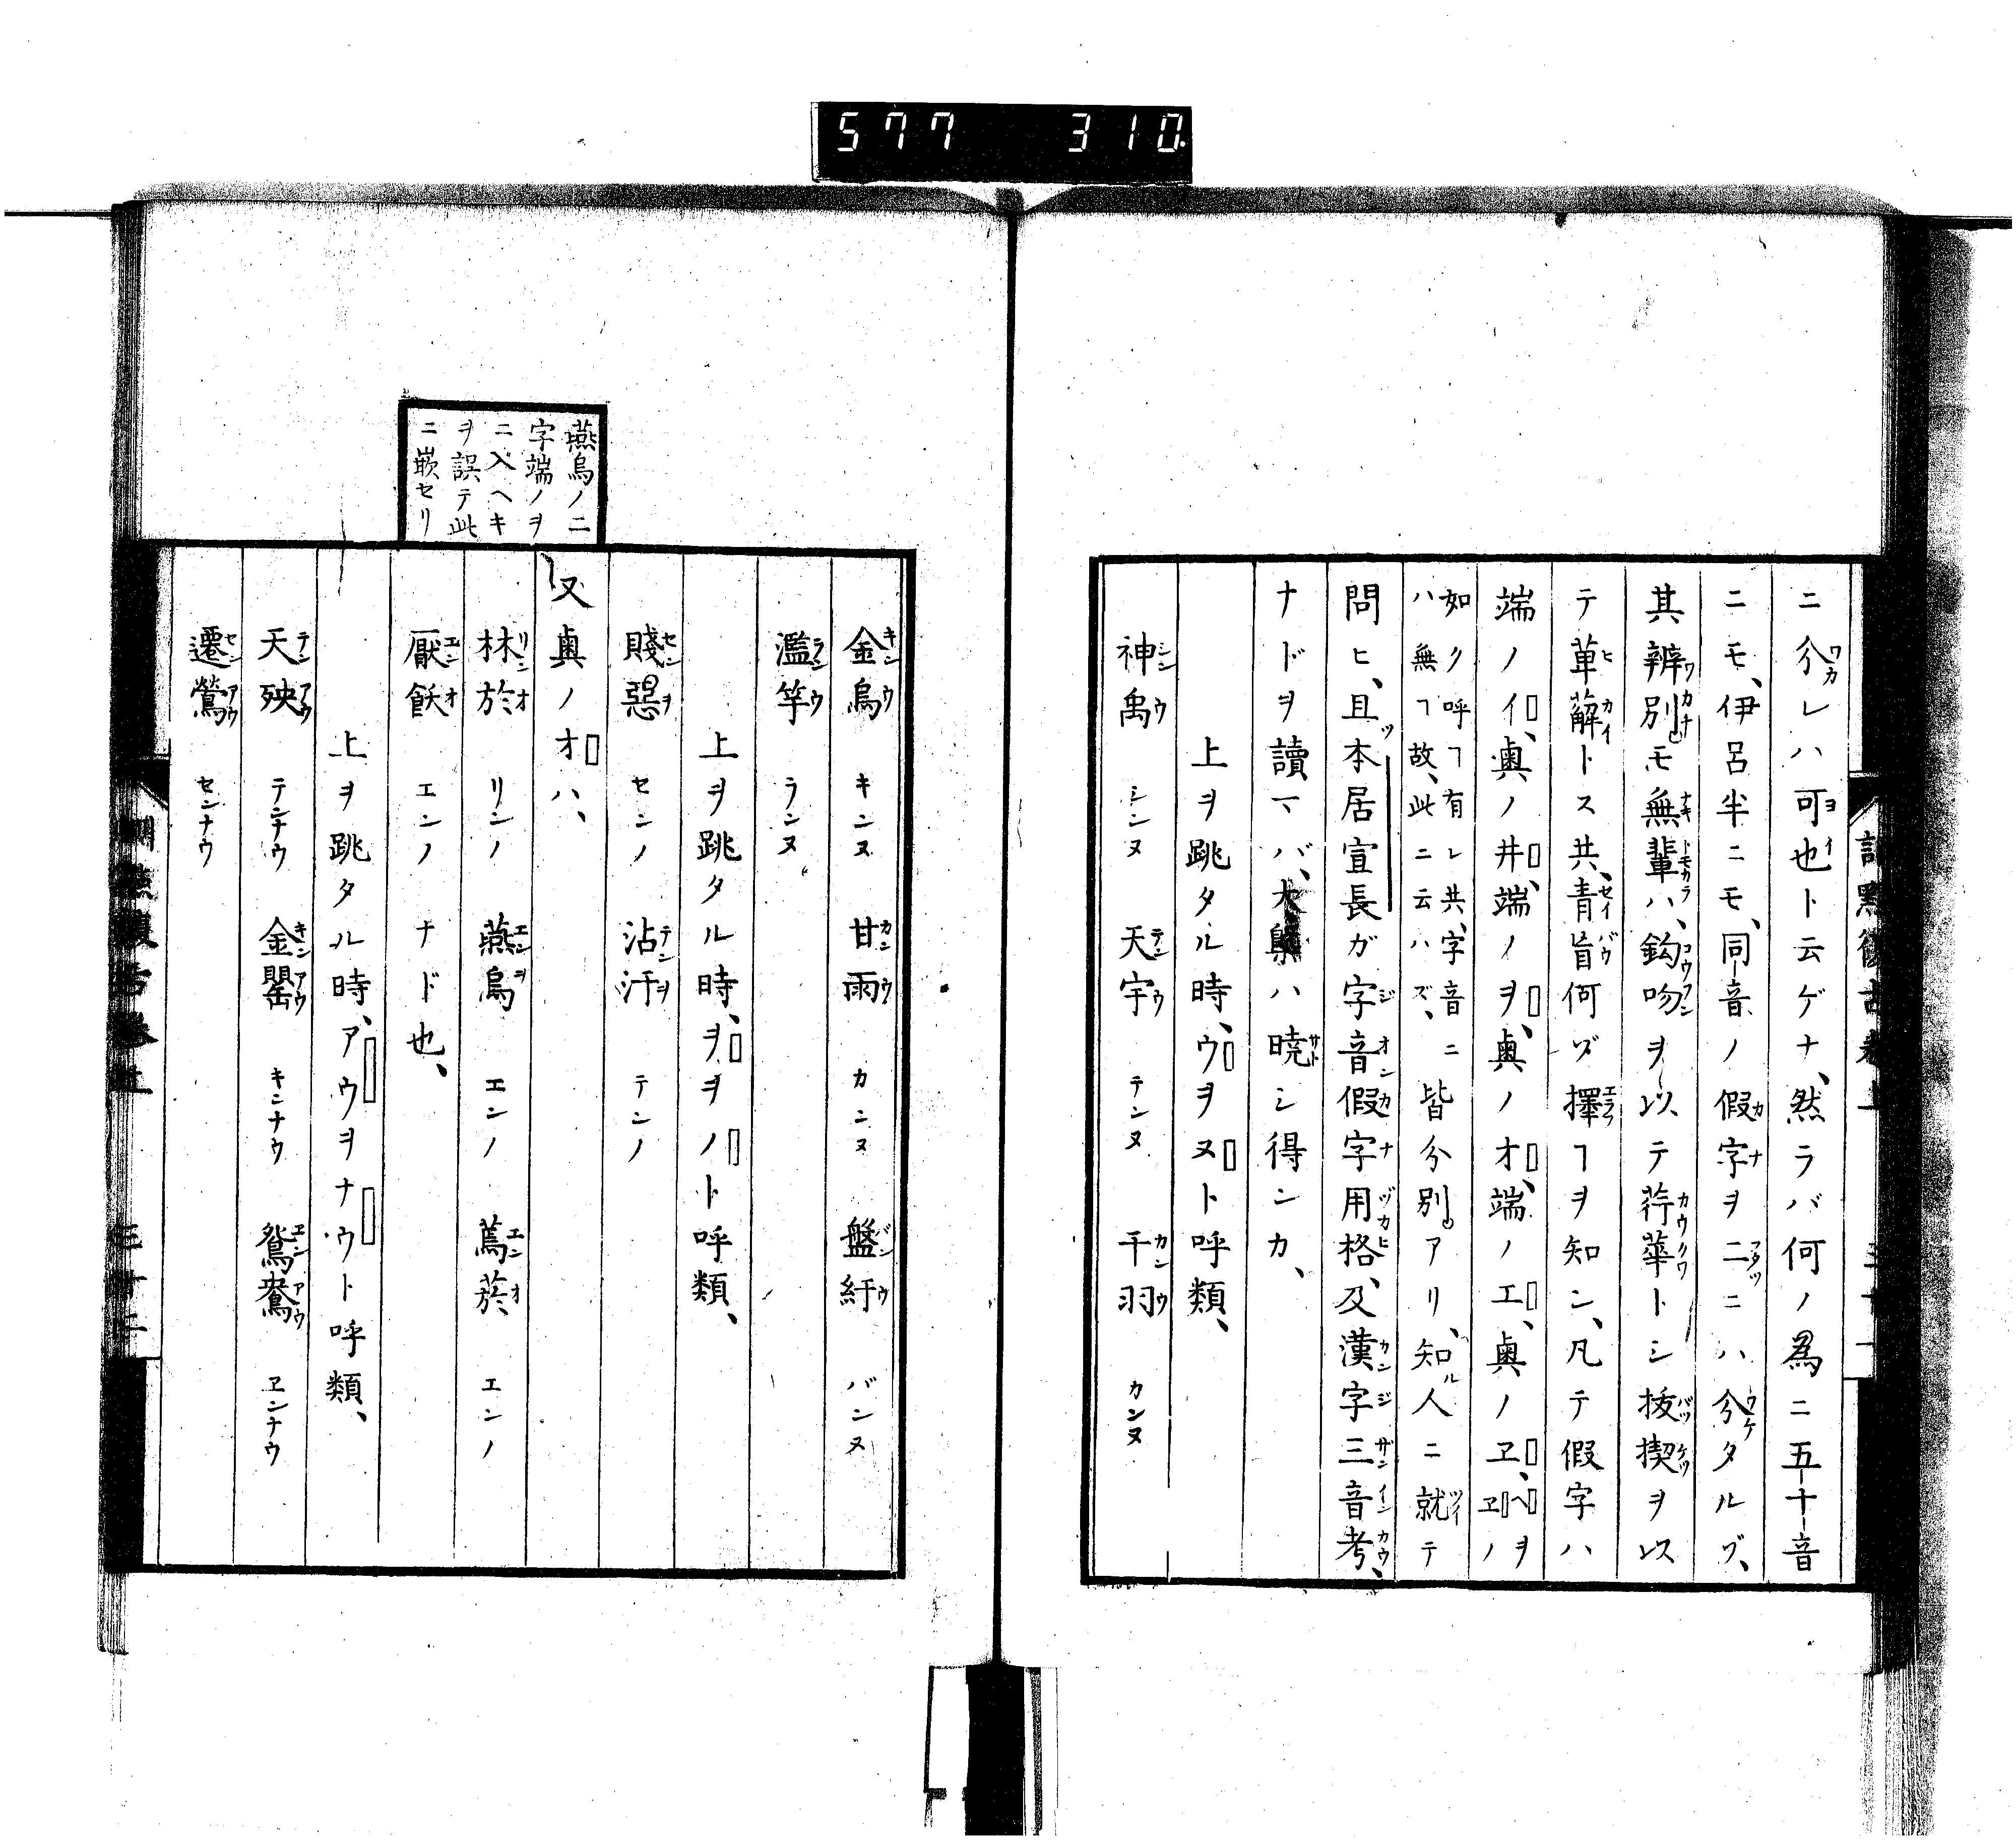 577 310
ニ分レハ可也ト云ゲナ、然ラバ何ノ為ニ五十音
ニモ、伊呂半ニモ、同音ノ假字ヲ二ニハ分タルゾ、
其辨別モ無輩ハ、鈎吻ヲ以テ荇華トシ抜揳ヲ以
テ萆薢トス共、青盲何ゾ擇ヿヲ知ン、凡テ假字ハ
端ノイ、奥ノ井、端ノヲ、奥ノオ、端ノエ、奥ノヱ、ヘヲヱノ
如ク呼ヿ有レ共、字音ニ
ハ無ヿ故、此ニ云ハズ、
皆分別アリ、知人ニ就テ
問ヒ、且ツ本居宣長ガ字音假字用格、及漢字三音考、
ナドヲ讀マバ、大槩ハ暁シ得ンカ、
上ヲ跳タル時、ウヲヌト呼類、
神禹 シンウ シンヌ 天宇 テンウ テンヌ 干羽 カンウ カンヌ
金烏 キンウ キンヌ 甘雨 カンウ カンヌ 盤紆 バンウ バンヌ
濫竽 ランウ ランヌ
上ヲ跳タル時、ヲヲノト呼類、
賤惡 センヲ センノ 沾汙 テンヲ テンノ
又奥ノオハ、
林於 リンオ リンノ 燕烏 エンヲ エンノ 蔫菸 エンオ エンノ
厭飫 エンオ エンノ ナド也、
上ヲ跳タル時、アウヲナウト呼類、
天殃 テンアウ テンナウ 金罌 キンアウ キンナウ 鴛鴦 エンアウ ヱンナウ
遷鶯 センアウ センナウ
燕烏ノ二
字端ノヲ
ニ入ヘキ
ヲ誤テ此
ニ嵌セリ